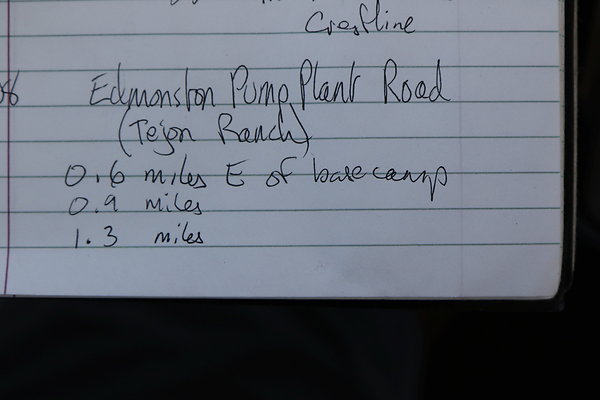 Crestline
Edmonston Pump Plant Road
(Tejon Ranch)
0.6 miles E of basecamp
0.9 miles
1.3 miles